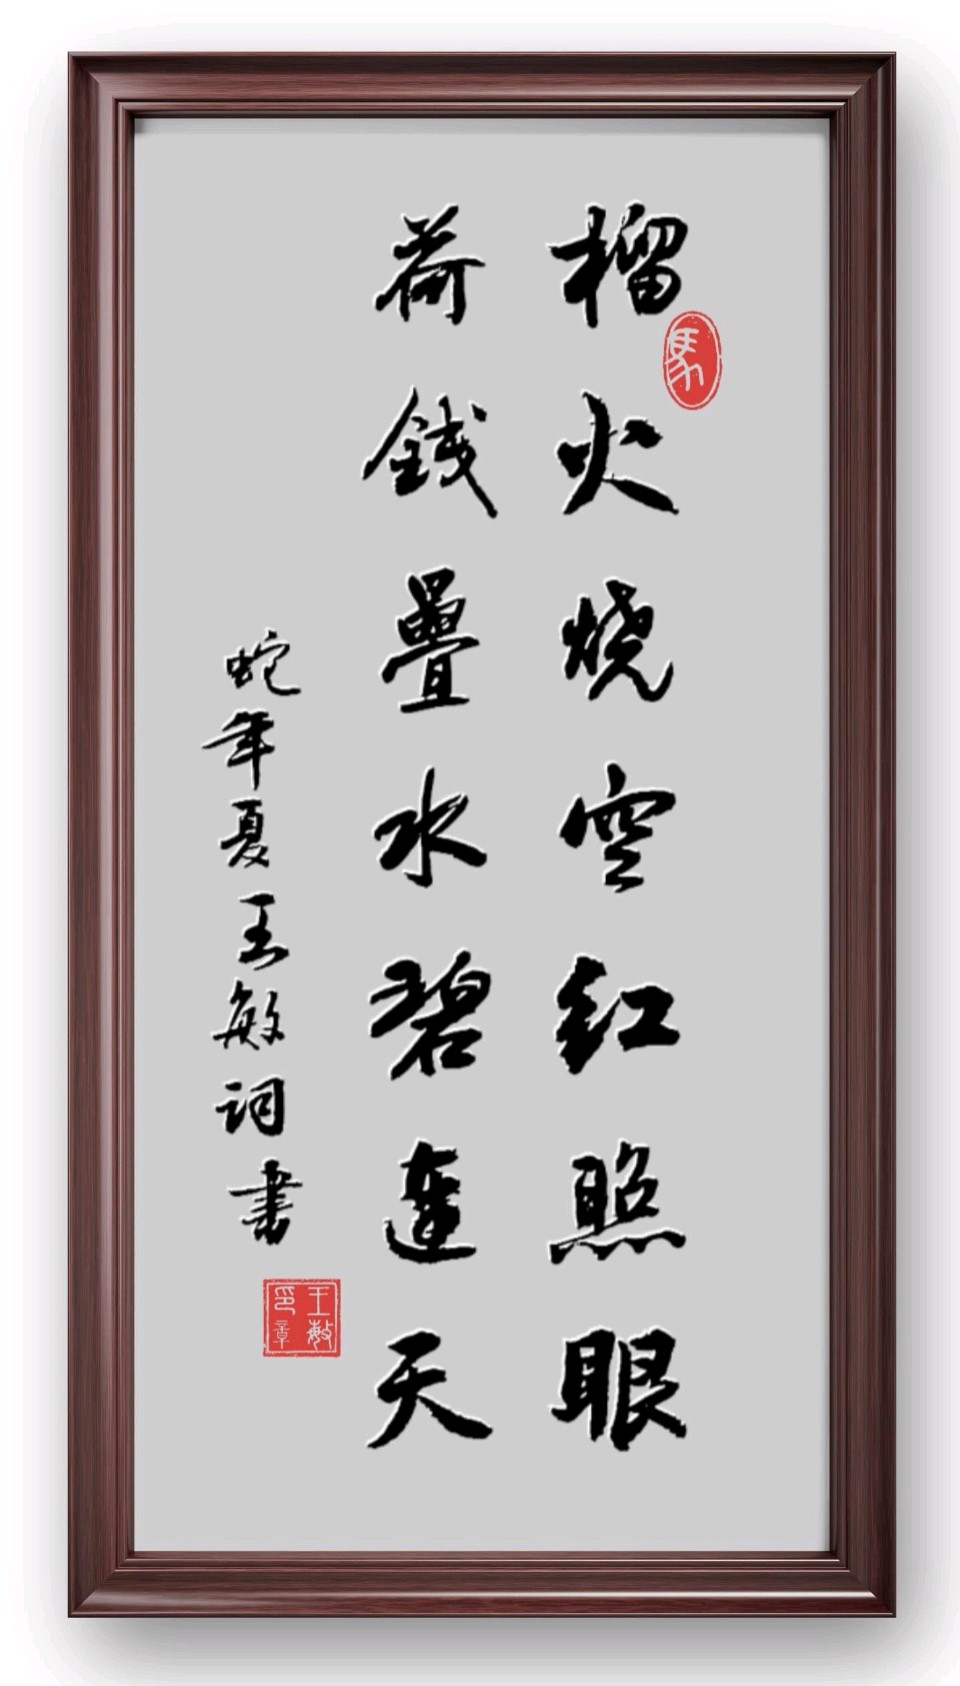 榴火烧空红照眼
荷钱疊水碧連天
蛇年夏王敏词書
馬
王敏印章